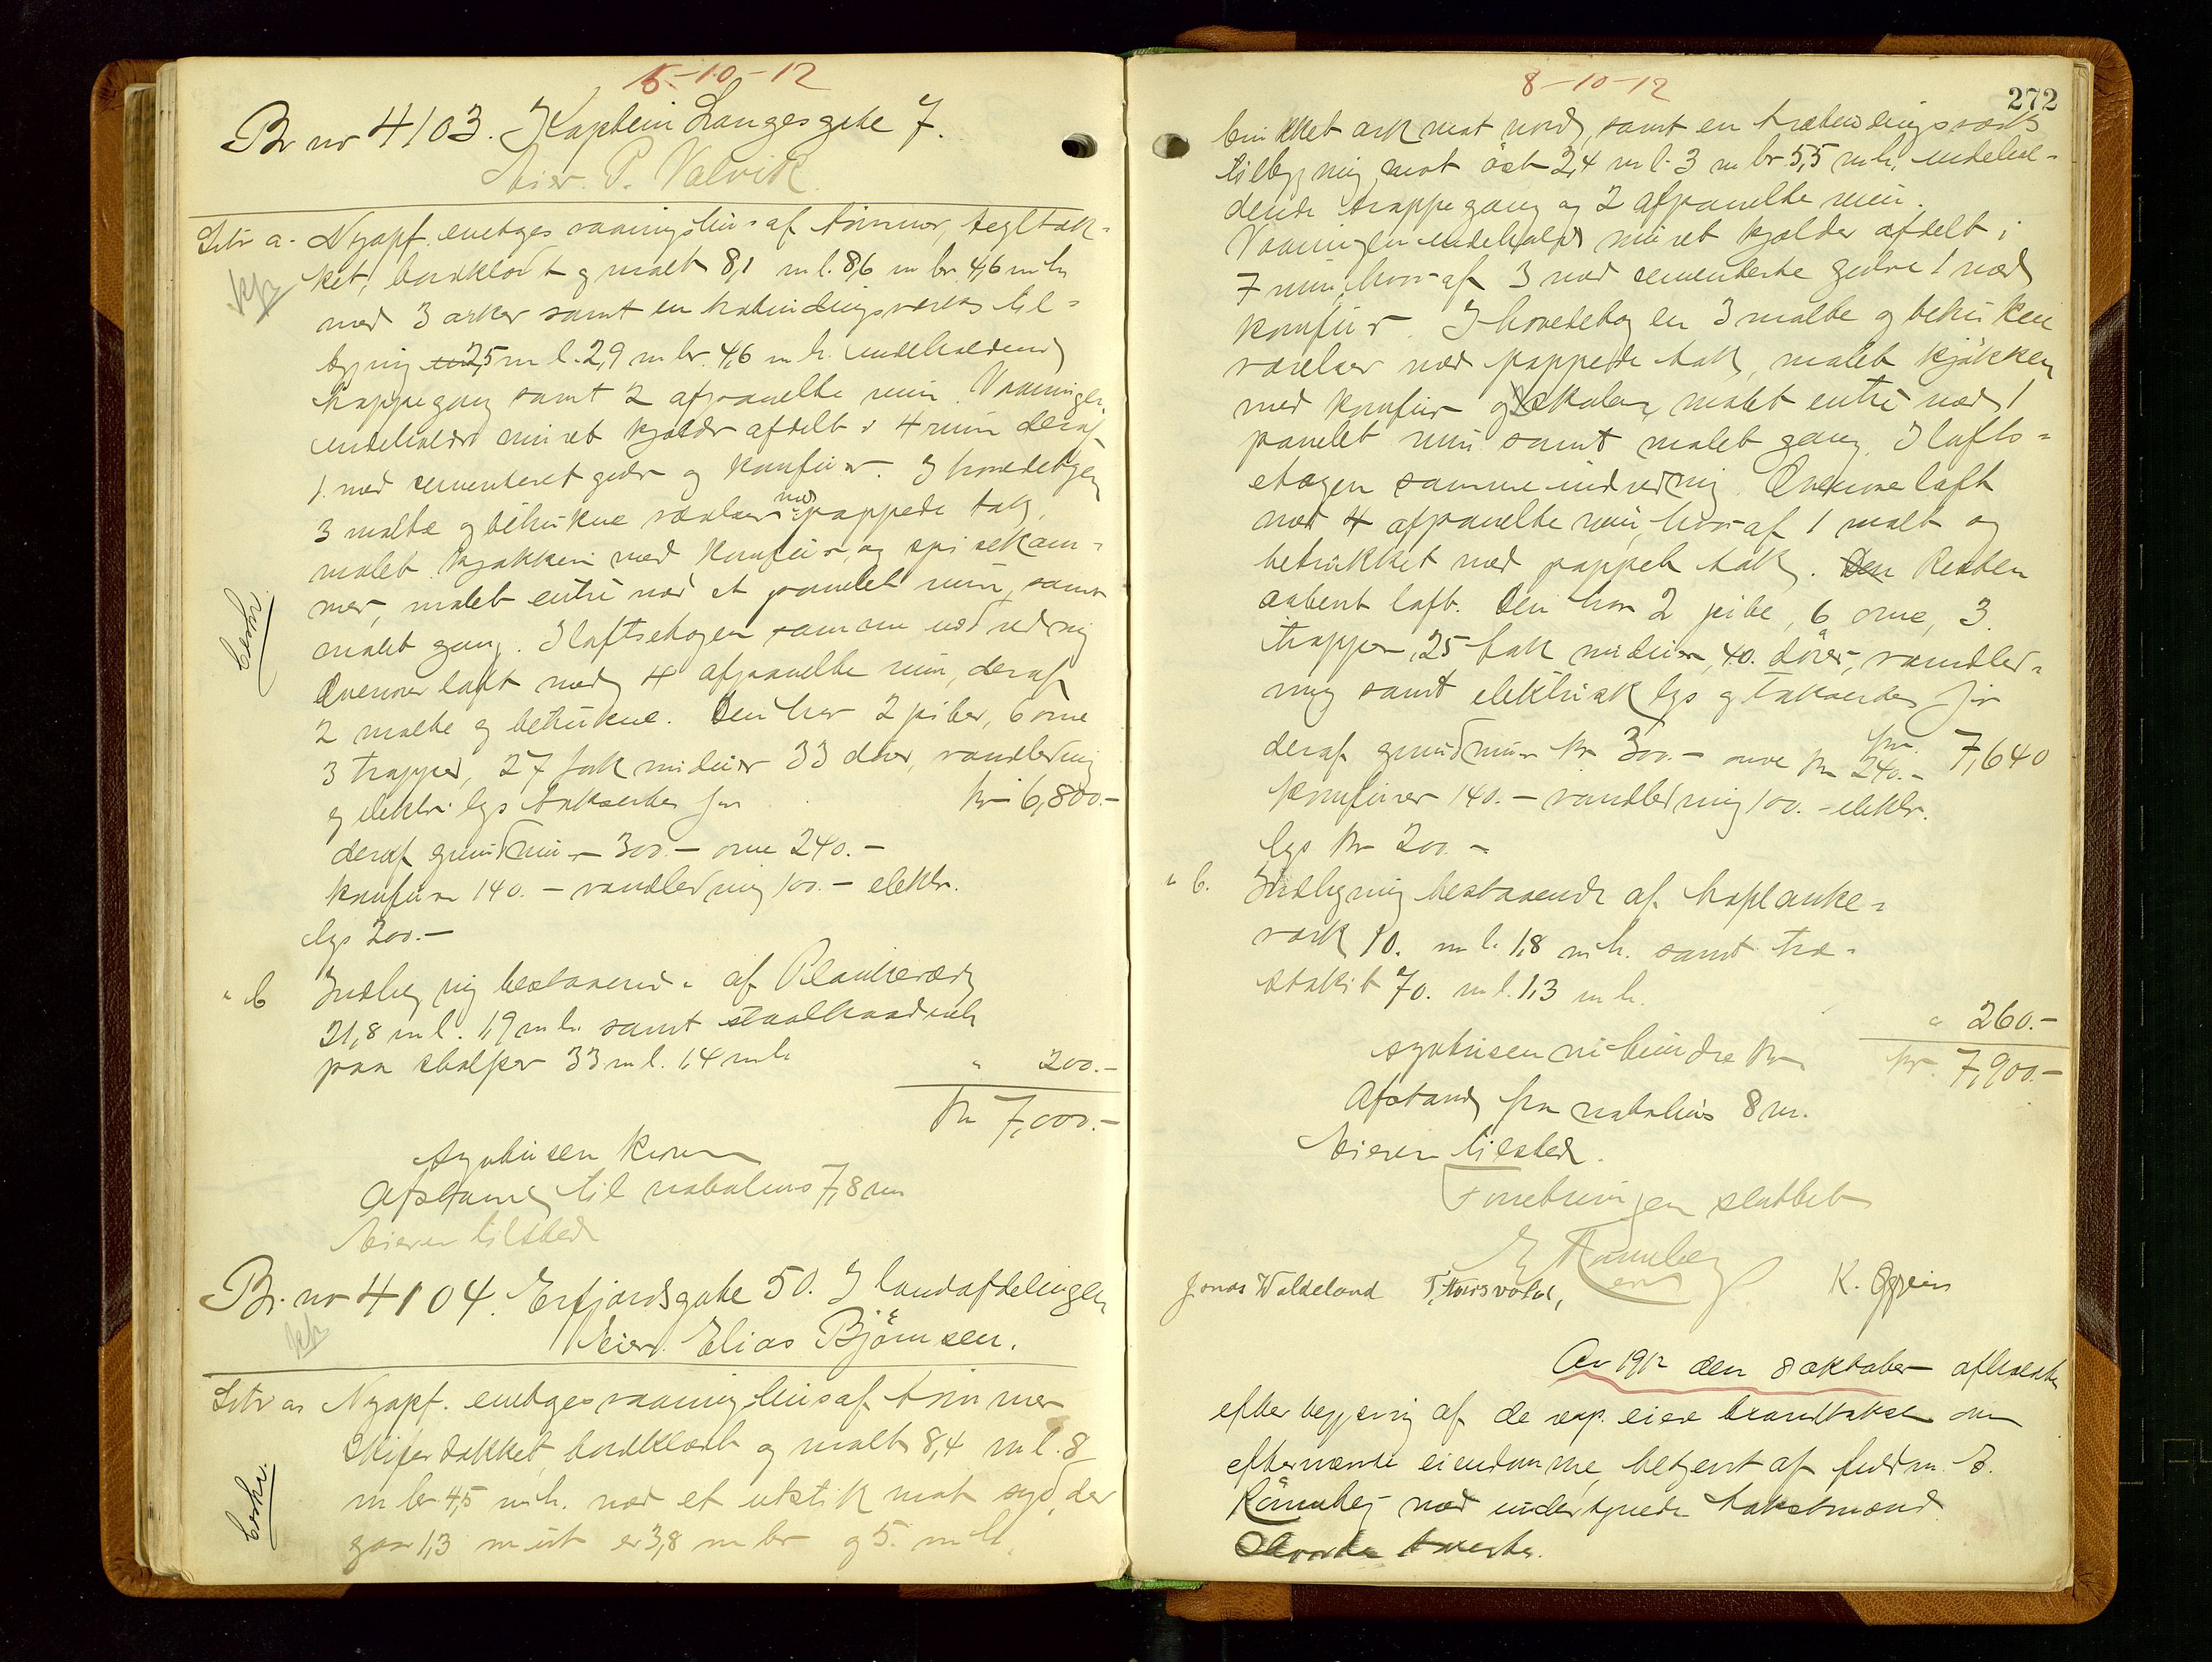 5-10-12
Br nr 4103. I Kaptein Langesgate 7.
Eier. P. Valvik.
Litr a. Nyopf. enetages vaaningshus af tømmer, tegltæk-
ket, bordklædt og malt 8,1 m l. 8,6 m br. 4,6 m h.
med 3 arker samt en træbindingsværks til-
bygning 2,5 m l. 2,9 m br. 4,6 m h. indeholdende
trappegang samt 2 afpanelte rum. Vaaningen
indeholder muret kjælder afdelt i 4 rum deraf
1 med cementeret gulv og komfur. I hovedetagen
3 malte og betrukne værelser med pappede tak,
malet kjøkken med komfur og spisekam-
mer, malet entré med et panelet rum, samt
malet gang. I loftsetagen samme indredning
Øverover loft med 4 afpanelte rum, deraf
2 malte og betrukne. Den har 2 piber, 6 ovne
3 trapper, 27 fak vinduer 33 dører, vandledning
og elektr. lys takseret for kr 6,800.-
deraf grundmur 300.- ovne 240.-
komfurer 140.- vandledning 100.- elektr.
lys 200.-
" b Indhegning bestaaende af Plankeværk
21,8 m l. 1,9 m h. samt staaltraadnet
paa stolper 33 m l. 1,4 m h. " 200.-
Kr 7,000.-
syvtusen kroner
Afstand til nabohus 7,8 m
Eieren tilstede
Br. nr 4104. Erfjordsgate 50. I landafdelingen
Eier. Elias Björnsen.
Litr a. Nyopf. enetages vaaningshus af tømmer
skifertækket, bordklædt og malt 8,4 m l. 8
m br 4,5 m h. med et utstik mot syd, der
gaar 1,3 m ut er 3,8 m br og 5. m h.
beskr.
beskr.
8-10-12
272
brukket ark mot nord, samt en træbindingsværks
tilbygning mot öst 2,4 m l. 3 m br 5,5 m h. indehol-
dende trappegang og 2 afpanelte rum.
Vaaningen indeholder muret kjælder afdelt i
7 rum, hvoraf 3 med cementerte gulve 1 med
komfur. I hovedetagen 3 malte og betrukken
værelser med pappede tak, malet kjøkken
med komfur og malet entré med 1
panelet rum samt malet gang. I lofts-
etagen samme indredning. Øverover loft
med 4 afpanelte rum, hvoraf 1 malt og
betrukket med pappet tak. Resten
aabent loft. Den har 2 pibe, 6 ovne, 3
trapper, 25 fak vinduer, 40. dører, vandled-
ning samt elektrisk lys og takseres for
kr. 7,640
deraf grundmur kr 300.- ovne kr 240.-
komfurer 140.- vandledning 100.- elektr.
lys kr 200.-
" b. Indhegning bestaaende af træplanke-
værk 10. m l. 1,8 m h. samt træ-
stakit 70. m l. 1,3 m h.
" 260.-
syvtusen nihundre kr kr. 7,900.-
Afstand fra nabohus 8 m.
Eieren tilstede.
Forretningen sluttet
E Rönneberg
Jonas Waldeland T. Thorsvold, K.
Aar 1912 den 8 oktober afholdtes
efter begjæring af de resp. eiere brandtakst over
efternævnte eiendomme, betjent af fuldm. E.
Rönneberg med undertegnede takstmænd.